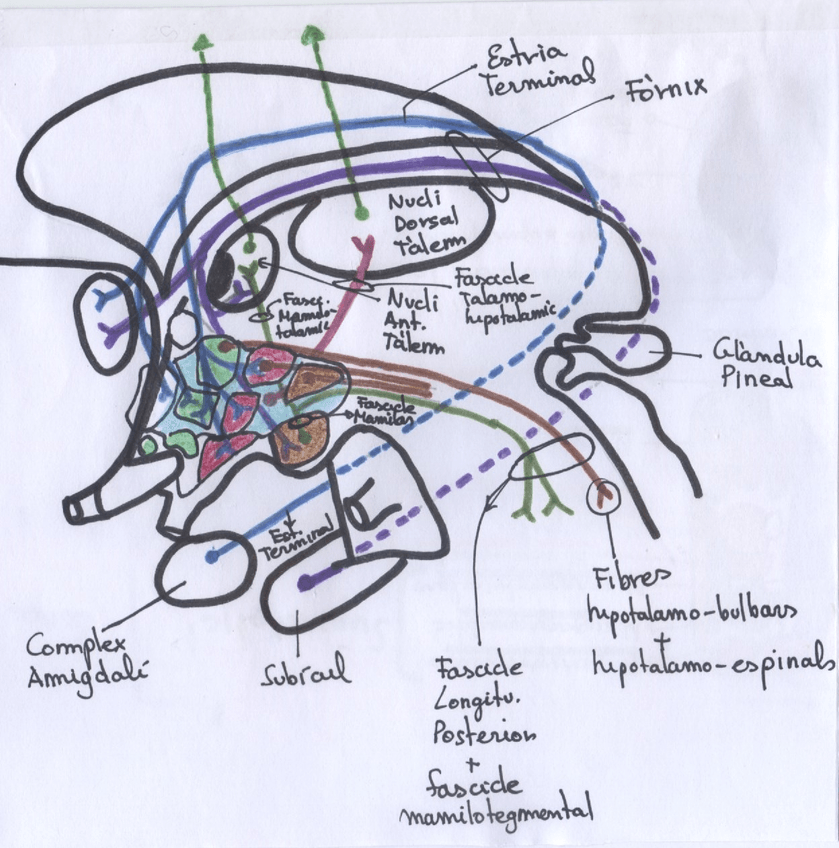 Estria
Terminal
Fòrnix
Nucli
Dorsal
Tàlem
Fascicle
Talamo-
hipotalamic
Fasci.
Mamilo-
talamic
Nucli
Ant.
Tàlem
Glàndula
Pineal
Fascicle
Mamilar
Est.
Terminal
Complex
Amigdalí
Subícul
Fibres
hipotalamo-bulbars
+
hipotalamo-espinals
Fascicle
Longitu.
Posterior
+
fascicle
mamilotegmental